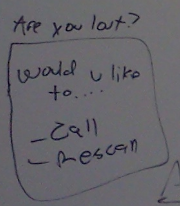 Are you lout?
would u like
to....
- Call
- Rescan